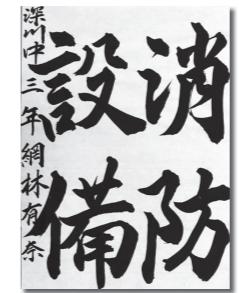 消防
設備
深川中三年 網林有奈